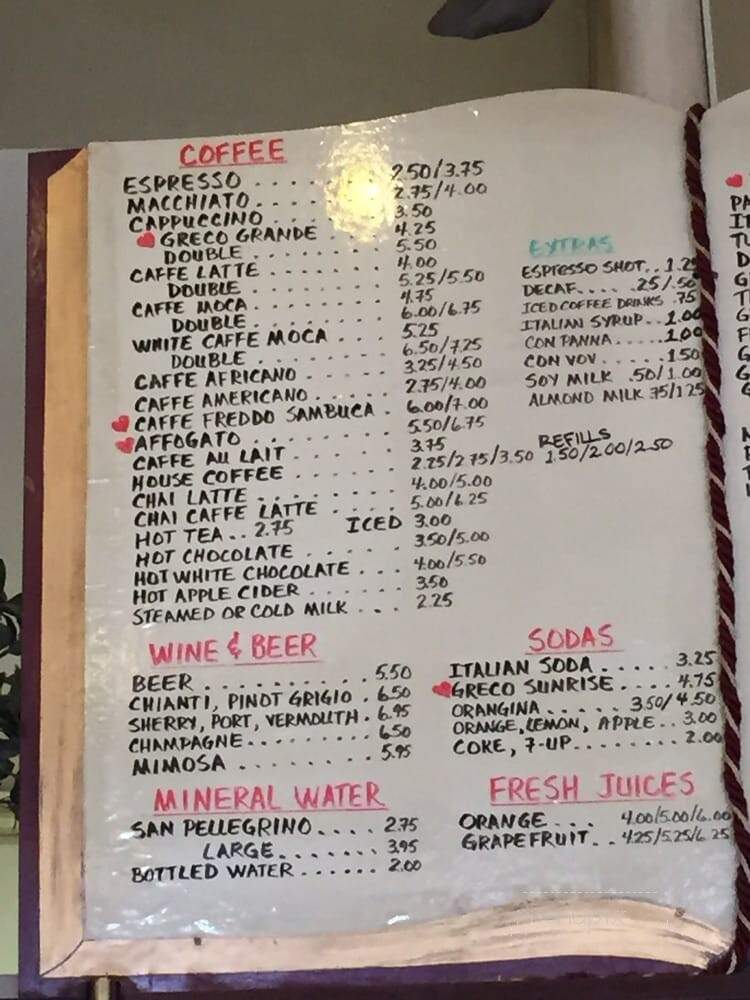 COFFEE
ESPRESSO . . . . . . . 2.50/3.75
MACCHIATO . . . . . . 2.75/4.00
CAPPUCCINO . . . . . . 3.50
GRECO GRANDE . . . . 4.25
DOUBLE . . . . . . . . 5.50
CAFFE LATTE . . . . . . 4.00
DOUBLE . . . . . . . . 5.25/5.50
CAFFE MOCA . . . . . . 4.75
DOUBLE . . . . . . . . 6.00/6.75
WHITE CAFFE MOCA . . . 5.25
DOUBLE . . . . . . . . 6.50/7.25
CAFFE AFRICANO . . . . . 3.25/4.50
CAFFE AMERICANO . . . . 2.75/4.00
CAFFE FREDDO SAMBUCA . 6.00/7.00
AFFOGATO . . . . . . . 5.50/6.75
CAFFE AU LAIT . . . . . 3.75
HOUSE COFFEE . . . . . 2.25/2.75/3.50
CHAI LATTE . . . . . . . 4.00/5.00
CHAI CAFFE LATTE . . . . 5.00/6.25
HOT TEA . . 2.75 ICED 3.00
HOT CHOCOLATE . . . . . 3.50/5.00
HOT WHITE CHOCOLATE . . . 4.00/5.50
HOT APPLE CIDER . . . . . 3.50
STEAMED OR COLD MILK . . . 2.25
EXTRAS
ESPRESSO SHOT . . 1.25
DECAF . . . . . .25/.50
ICED COFFEE DRINKS .75
ITALIAN SYRUP . . 1.00
CON PANNA . . . . . 1.00
CON VOV . . . . . . 1.50
SOY MILK .50/1.00
ALMOND MILK .75/1.25
REFILLS
1.50/2.00/2.50
WINE & BEER
BEER . . . . . . . . . . 5.50
CHIANTI, PINOT GRIGIO . 6.50
SHERRY, PORT, VERMOUTH . 6.95
CHAMPAGNE . . . . . . . . 6.50
MIMOSA . . . . . . . . . 5.95
SODAS
ITALIAN SODA . . . . . . 3.25
GRECO SUNRISE . . . . 4.75
ORANGINA . . . . . . 3.50/4.50
ORANGE, LEMON, APPLE . . 3.00
COKE, 7-UP . . . . . . . . 2.00
MINERAL WATER
SAN PELLEGRINO . . . . 2.75
LARGE . . . . . . . . 3.95
BOTTLED WATER . . . . . . 2.00
FRESH JUICES
ORANGE . . . 4.00/5.00/6.00
GRAPEFRUIT . . 4.25/5.25/6.25